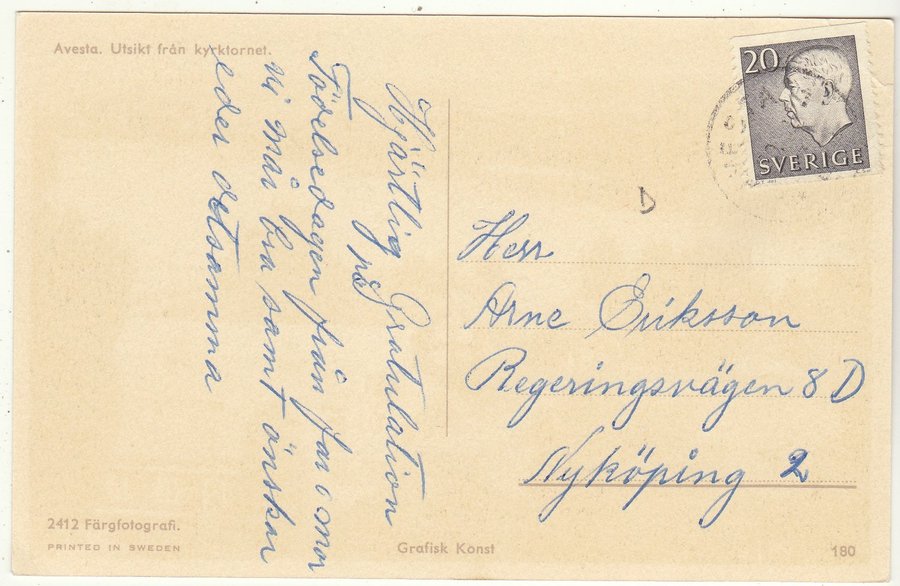 Avesta. Utsikt från kyrktornet.
Hjärtlig Gratulation
på
Födelsedagen från far o mor
vi mår bra samt önskar
eder detsamma
20
SVERIGE
D
Herr
Arne Eriksson
Regeringsvägen 8 D
Nyköping 2
2412 Färgfotografi.
PRINTED IN SWEDEN
Grafisk Konst
180